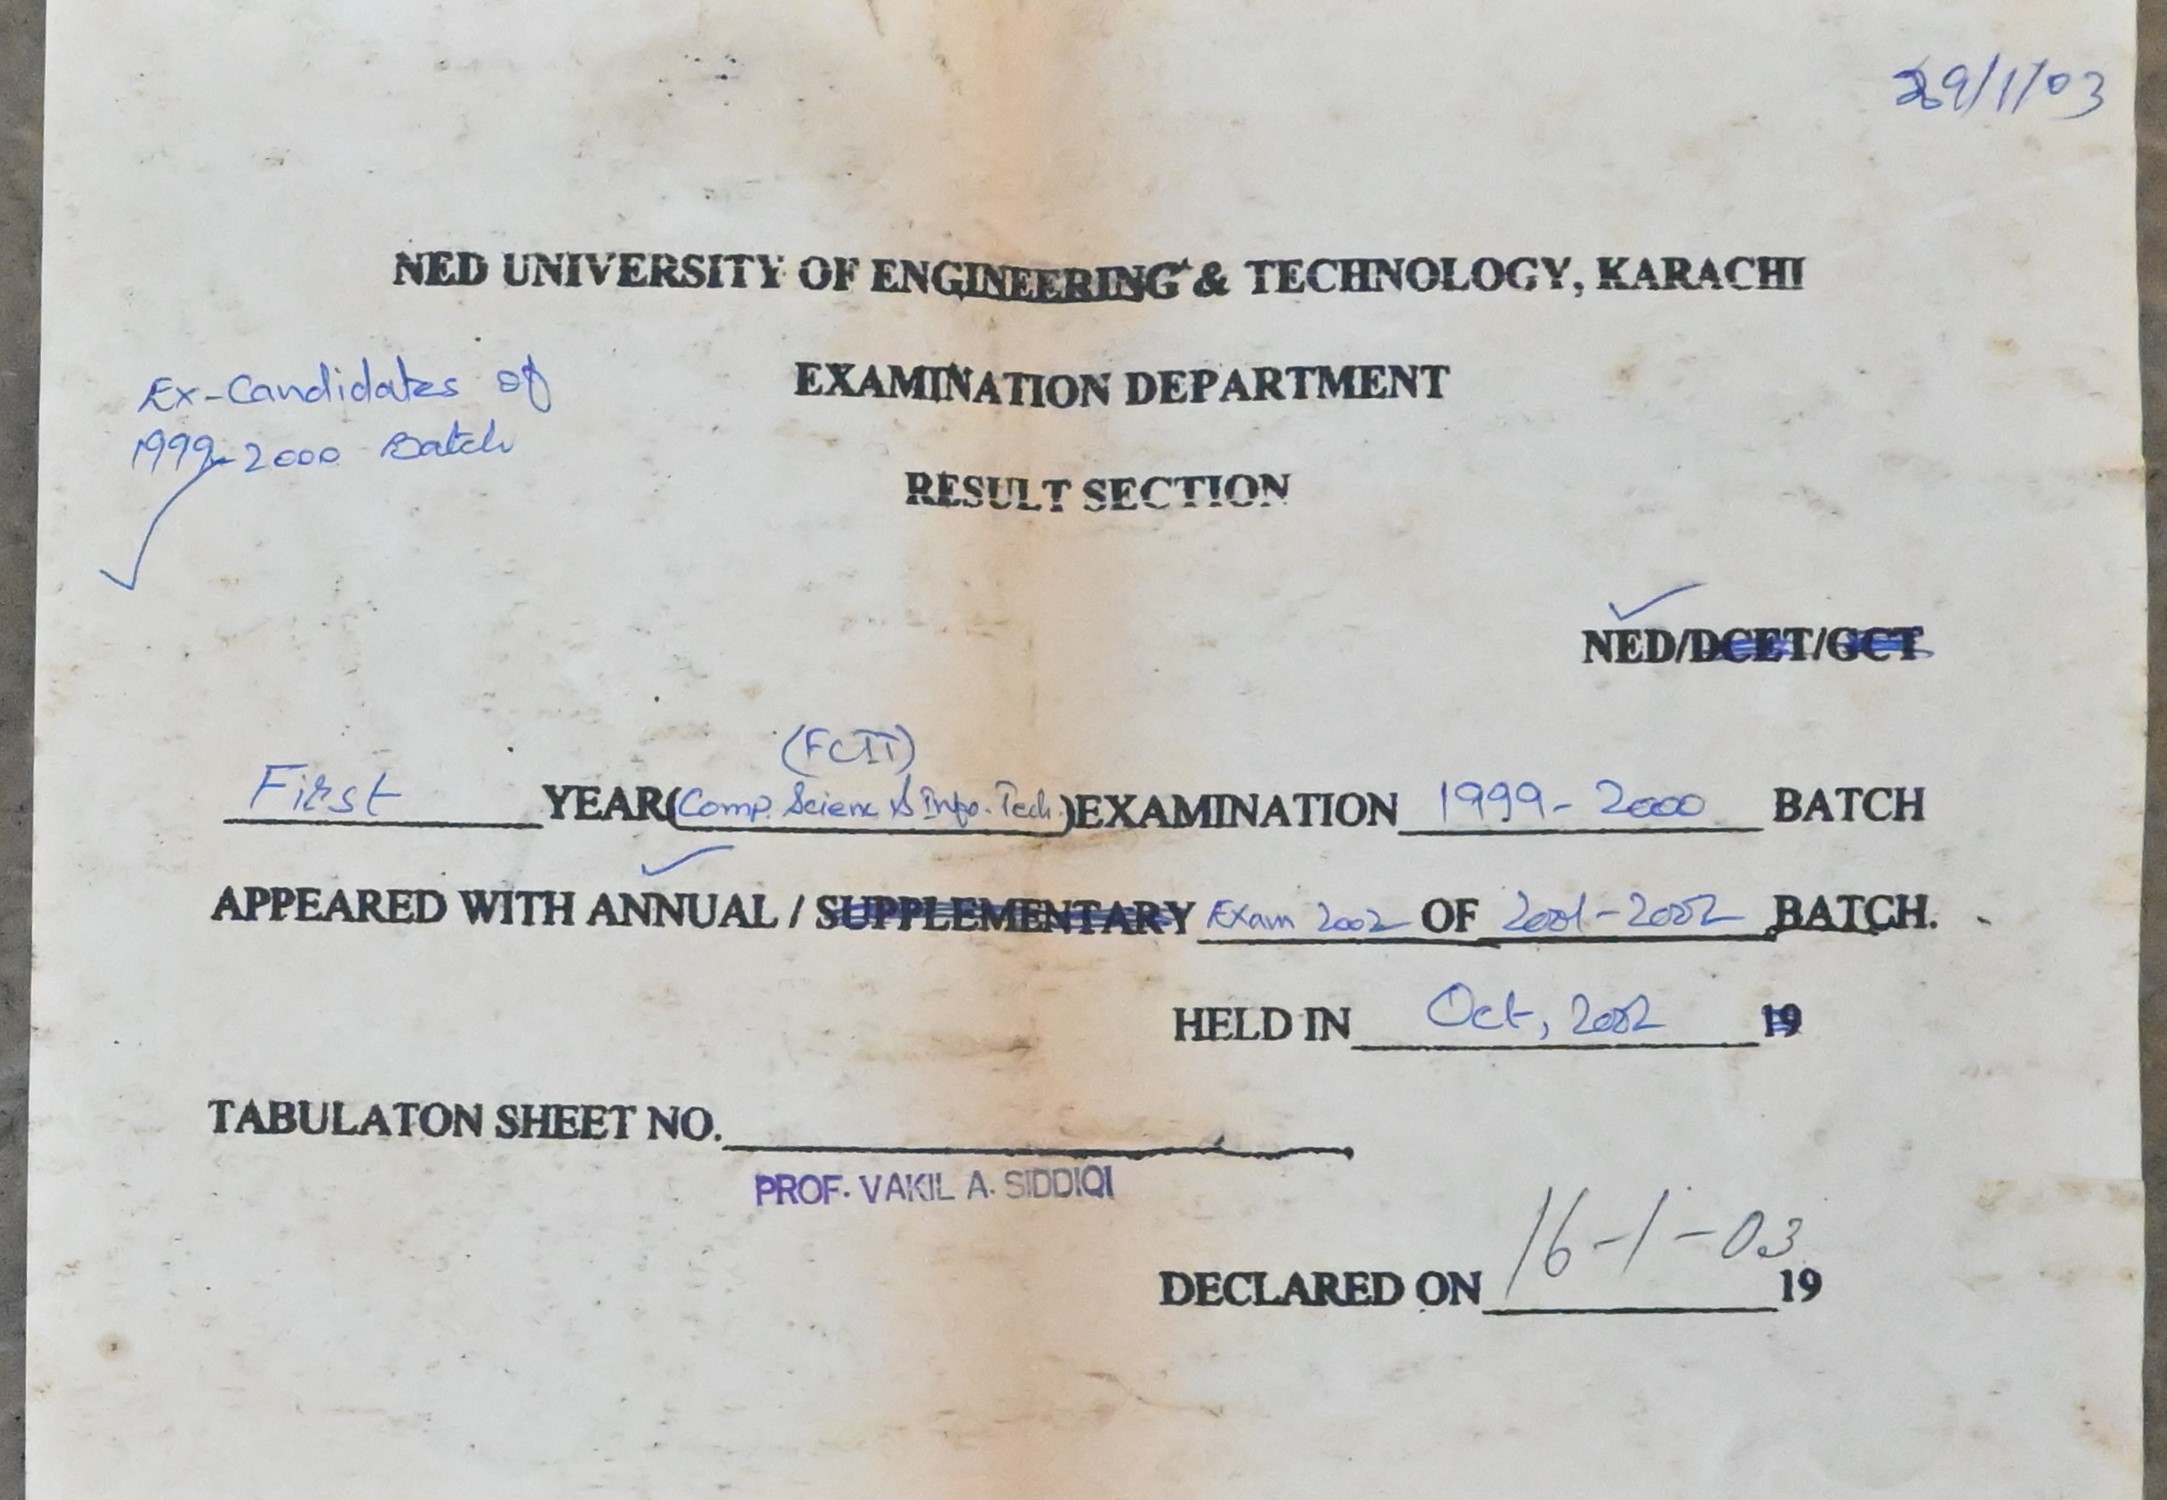 29/1/03
NED UNIVERSITY OF ENGINEERING & TECHNOLOGY, KARACHI
Ex-Candidates of
1999-2000 Batch
EXAMINATION DEPARTMENT
RESULT SECTION
NED/DCET/GCT
(FCIT)
First YEAR(Comp. Scienc & Info. Tech.)EXAMINATION 1999-2000 BATCH
APPEARED WITH ANNUAL / SUPPLEMENTARY Exam 2002 OF 2001-2002 BATCH.
HELD IN Oct, 2002 19
TABULATON SHEET NO.
PROF. VAKIL A. SIDDIQI
DECLARED ON 16-1-03 19